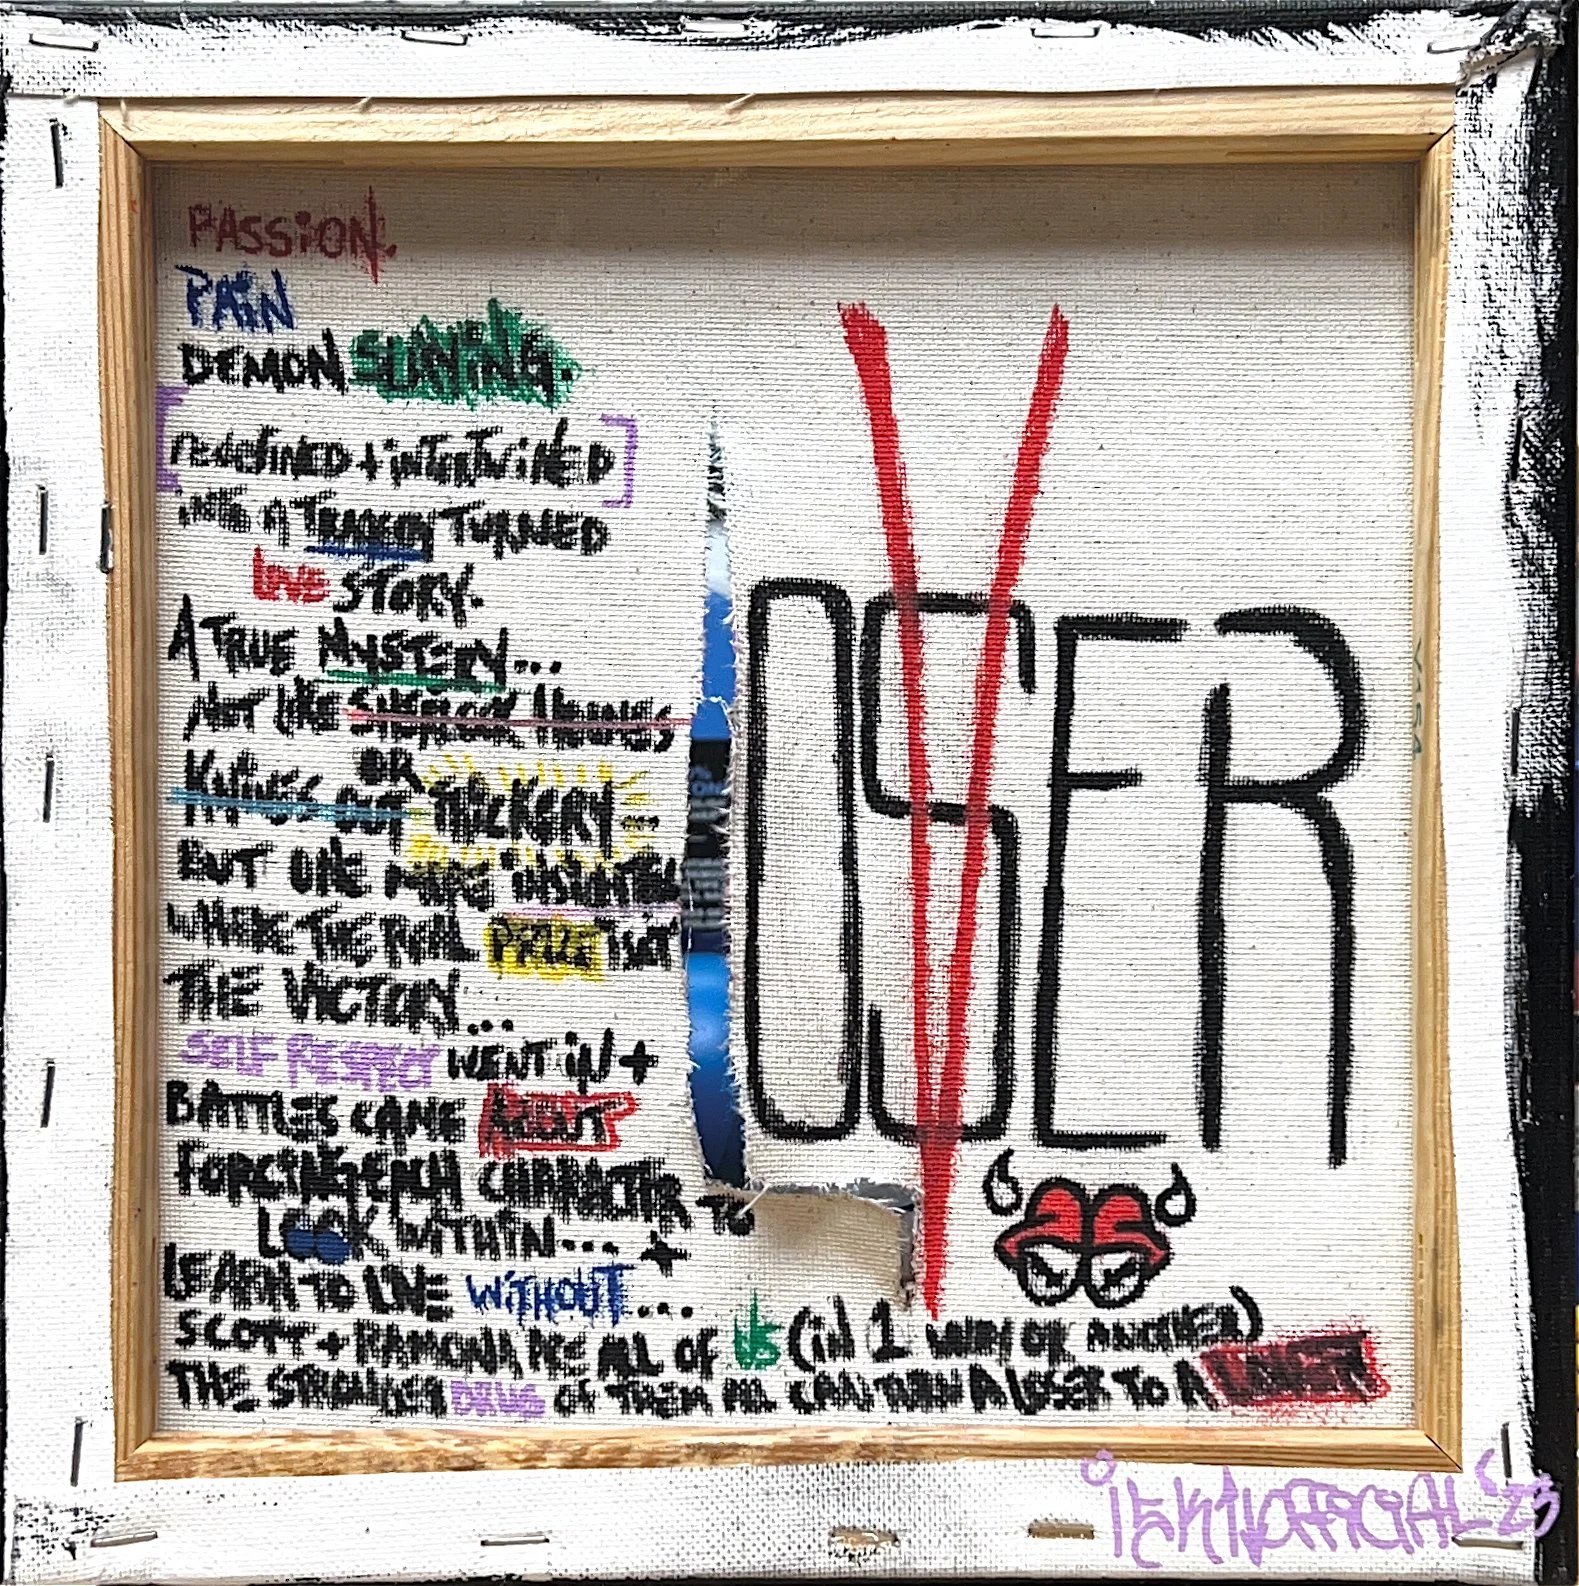 PASSION.
PAIN
DEMON SLAYING.
[redefined + intertwined]
into A Tragedy TURNED
LOVE STORY.
A TRUE MYSTERY...
NOT LIKE SHERLOCK HOLMES
OR
KNIVES OUT TRICKERY...
BUT ONE MORE
WHERE THE REAL PRIZE ISN'T
THE VICTORY...
SELF RESPECT WENT IN +
BATTLES CAME ABOUT
FORCING EACH CHARACTER TO
LOOK WITHIN... +
LEARN TO LIVE WITHOUT...
SCOTT + RAMONA ARE ALL OF US (IN 1 WAY OR ANOTHER)
THE STRONGEST DRUG OF THEM ALL CAN TURN A LOSER TO A
LOSER
V